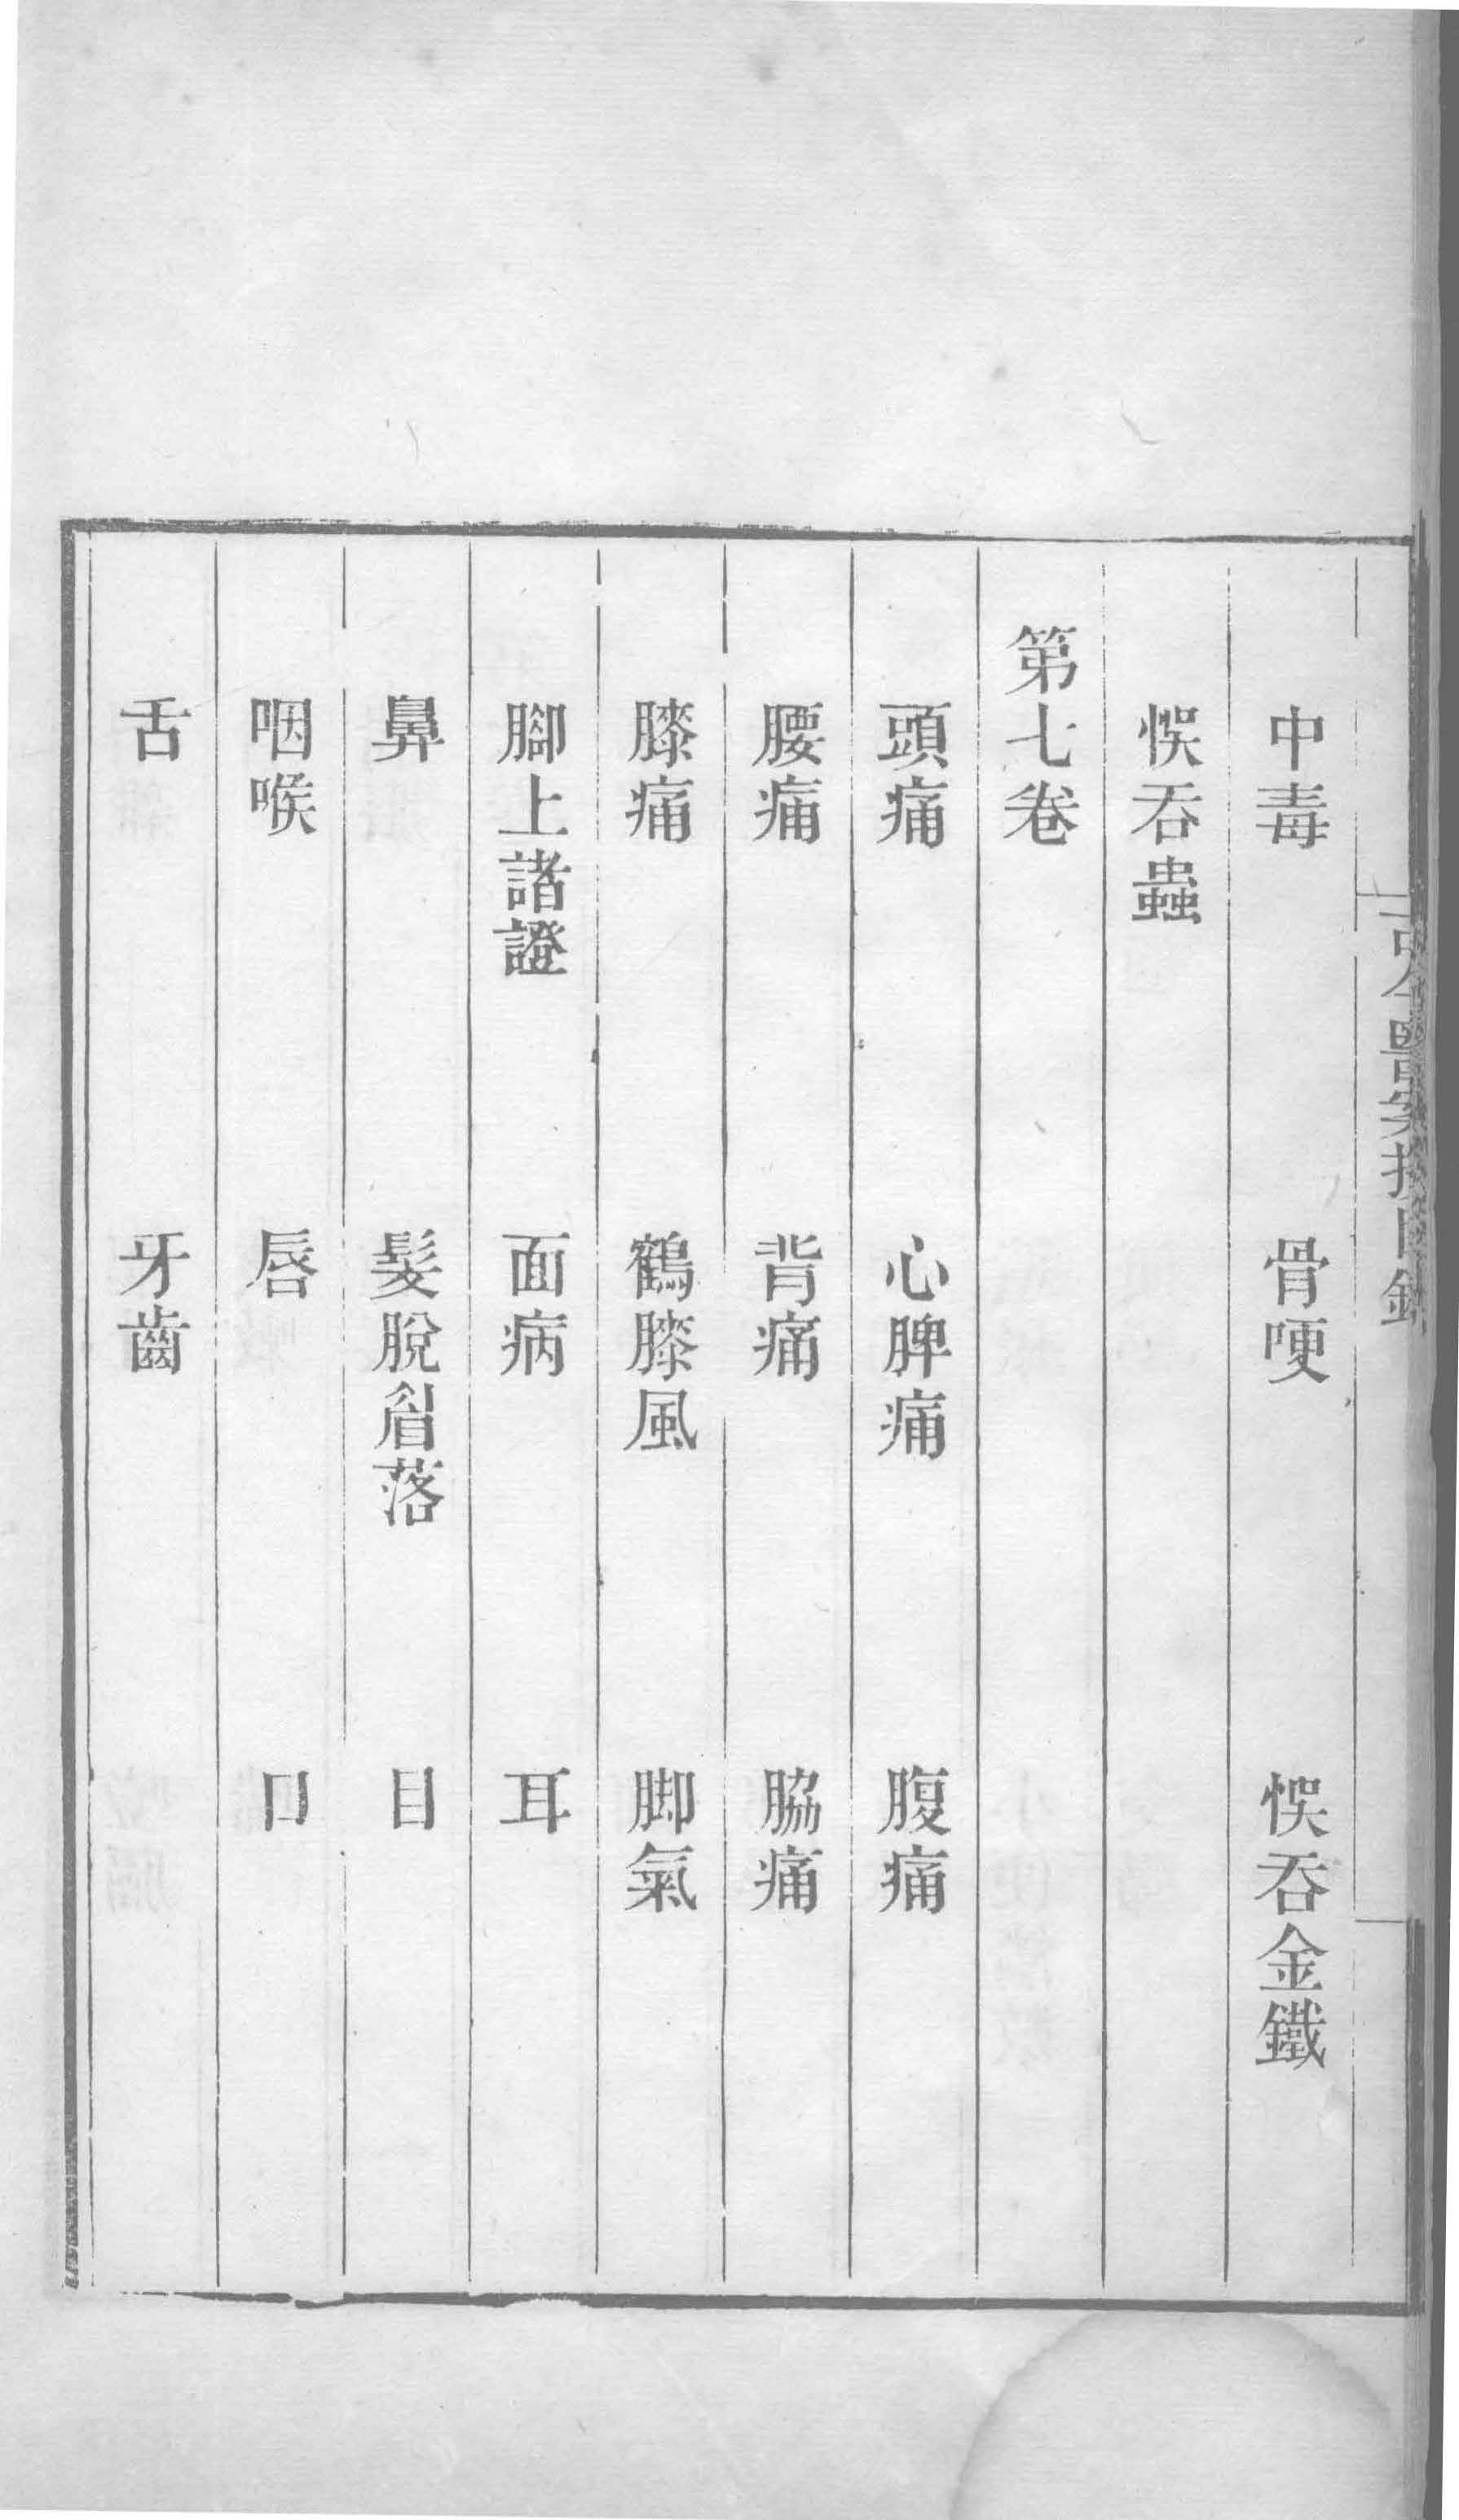 中毒　骨哽　悞吞金鐵
悞吞蟲
第七卷
頭痛　心脾痛　腹痛
腰痛　背痛　脇痛
膝痛　鶴膝風　脚氣
腳上諸證　面病　耳
鼻　髮脫眉落　目
咽喉　唇　口
舌　牙齒